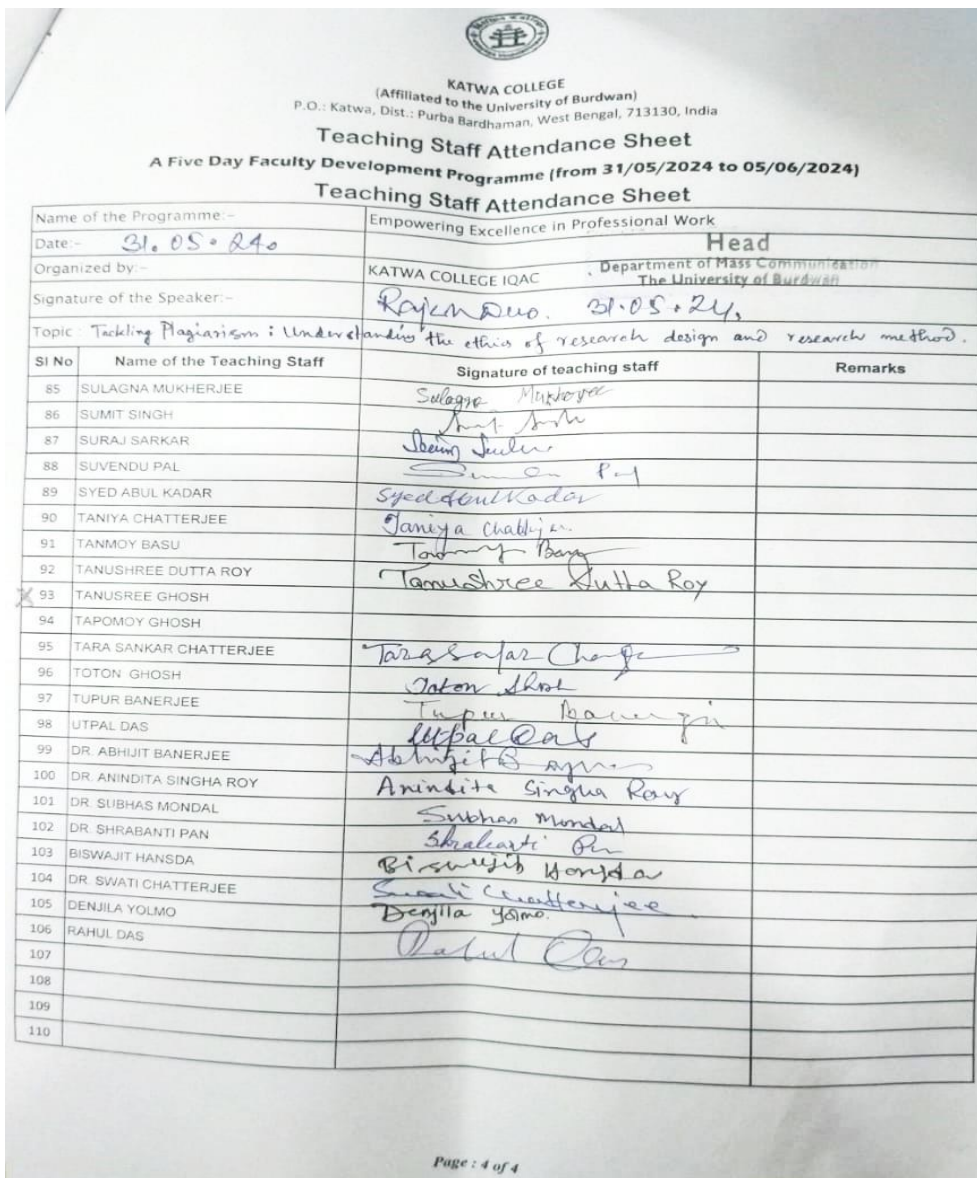 KATWA COLLEGE
(Affiliated to the University of Burdwan)
P.O.: Katwa, Dist.: Purba Bardhaman, West Bengal, 713130, India
Teaching Staff Attendance Sheet
A Five Day Faculty Development Programme (from 31/05/2024 to 05/06/2024)
Teaching Staff Attendance Sheet
Name of the Programme:- Empowering Excellence in Professional Work
Date:- 31.05.24. Head
Organized by:- KATWA COLLEGE IQAC Department of Mass Communication
The University of Burdwan
Signature of the Speaker:- 31.05.24.
Topic : Tackling Plagiarism : Understanding the ethics of research design and research method.
Sl No Name of the Teaching Staff Signature of teaching staff Remarks
85 SULAGNA MUKHERJEE Sulagna Mukherjee
86 SUMIT SINGH
87 SURAJ SARKAR
88 SUVENDU PAL Pal
89 SYED ABUL KADAR Syed Abul Kadar
90 TANIYA CHATTERJEE Taniya Chatterjee
91 TANMOY BASU Tanmoy Basu
92 TANUSHREE DUTTA ROY Tanushree Dutta Roy
X 93 TANUSREE GHOSH
94 TAPOMOY GHOSH
95 TARA SANKAR CHATTERJEE
96 TOTON GHOSH Toton Ghosh
97 TUPUR BANERJEE Tupur Banerjee
98 UTPAL DAS Utpal Das
99 DR. ABHIJIT BANERJEE Abhijit
100 DR. ANINDITA SINGHA ROY Anindita Singha Roy
101 DR. SUBHAS MONDAL Subhas Mondal
102 DR. SHRABANTI PAN Shrabanti Pan
103 BISWAJIT HANSDA Biswajit Hansda
104 DR. SWATI CHATTERJEE Swati Chatterjee
105 DENJILA YOLMO Denjila Yolmo.
106 RAHUL DAS Rahul Das
107
108
109
110
Page : 4 of 4